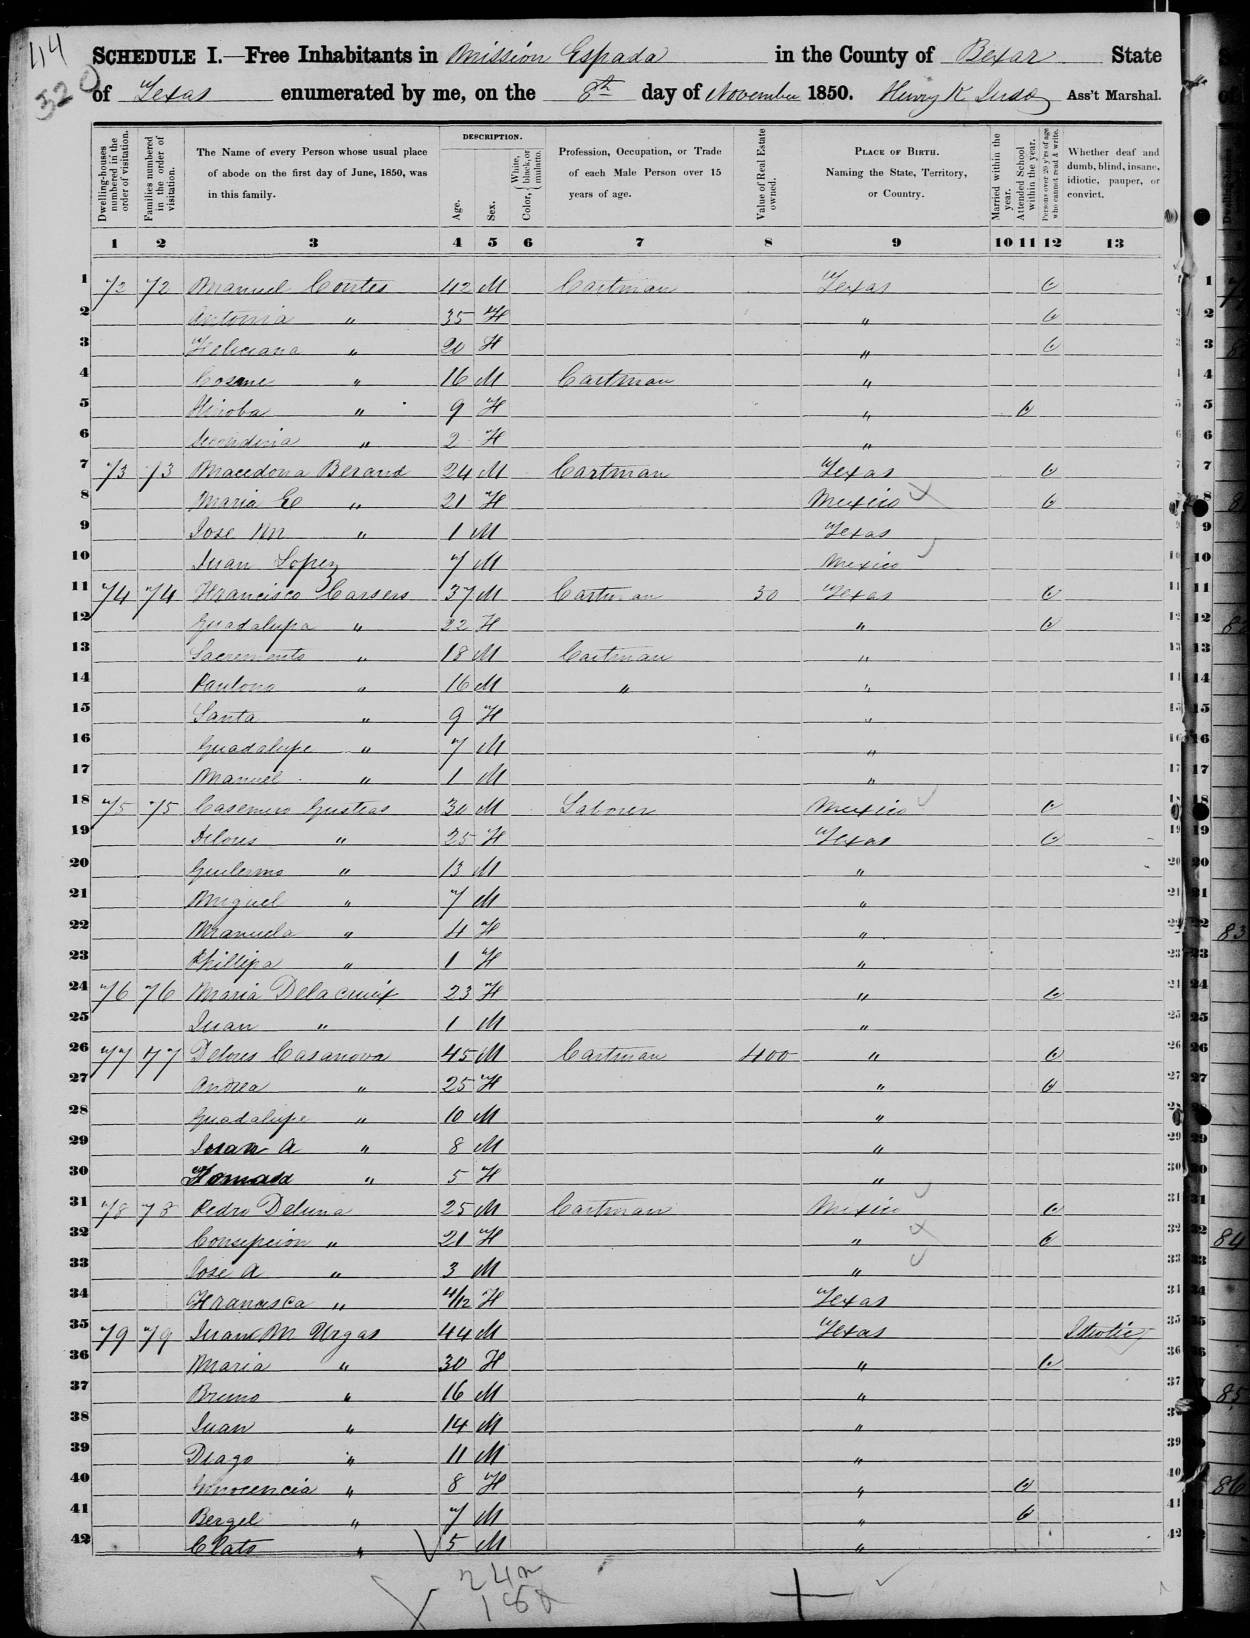 414
320
SCHEDULE I.—Free Inhabitants in Mission Espada in the County of Bexar State
of Texas enumerated by me, on the 8th day of November 1850. Henry K Ass't Marshal.
Dwelling-houses numbered in the order of visitation.
Families numbered in the order of visitation.
The Name of every Person whose usual place of abode on the first day of June, 1850, was in this family.
DESCRIPTION.
Age.
Sex.
Color, White, black, or mulatto.
Profession, Occupation, or Trade of each Male Person over 15 years of age.
Value of Real Estate owned.
PLACE OF BIRTH. Naming the State, Territory, or Country.
Married within the year.
Attended School within the year.
Persons over 20 y'rs of age who cannot read & write.
Whether deaf and dumb, blind, insane, idiotic, pauper, or convict.
1 2 3 4 5 6 7 8 9 10 11 12 13
1 72 72 Manuel Cortes 42 M Cartman Texas 1
2 Antonia " 35 F " 2
3 Feliciana " 20 F " 3
4 Cosme " 16 M Cartman " 4
5 " 9 F " 5
6 " 2 F " 6
7 73 73 Macedona 24 M Cartman Texas 7
8 Maria " 21 F Mexico 8
9 Jose " 1 M Texas 9
10 Juan Lopez 7 M Mexico 10
11 74 74 Francisco 37 M Cartman 30 Texas 11
12 Guadalupa " 22 F " 12
13 Sacremento " 18 M Cartman " 13
14 " 16 M " " 14
15 Santa " 9 F " 15
16 Guadalupe " 7 M " 16
17 Manuel " 1 M " 17
18 75 75 30 M Laborer Mexico 18
19 Delores " 25 F Texas 19
20 Guilermo " 13 M " 20
21 Miguel " 7 M " 21
22 Manuela " 4 F " 22
23 Phillipa " 1 F " 23
24 76 76 Maria Delacruix 23 F " 24
25 Juan " 1 M " 25
26 77 77 Delores Casanova 45 M Cartman 400 " 26
27 Andrea " 25 F " 27
28 Guadalupe " 10 M " 28
29 A " 8 M " 29
30 Tomasa " 5 F " 30
31 78 78 Pedro Deluna 25 M Cartman Mexico 31
32 Consepcion " 21 F " 32
33 Jose A " 3 M " 33
34 Francisca " 4/12 F Texas 34
35 79 79 Juan M Urgas 44 M Texas Idiotic 35
36 Maria " 30 F " 36
37 Bruno " 16 M " 37
38 Juan " 14 M " 38
39 Diago " 11 M " 39
40 " 8 F " 40
41 Bergel " 7 M " 41
42 Clato " 5 M " 42
24
18
83
84
85
86